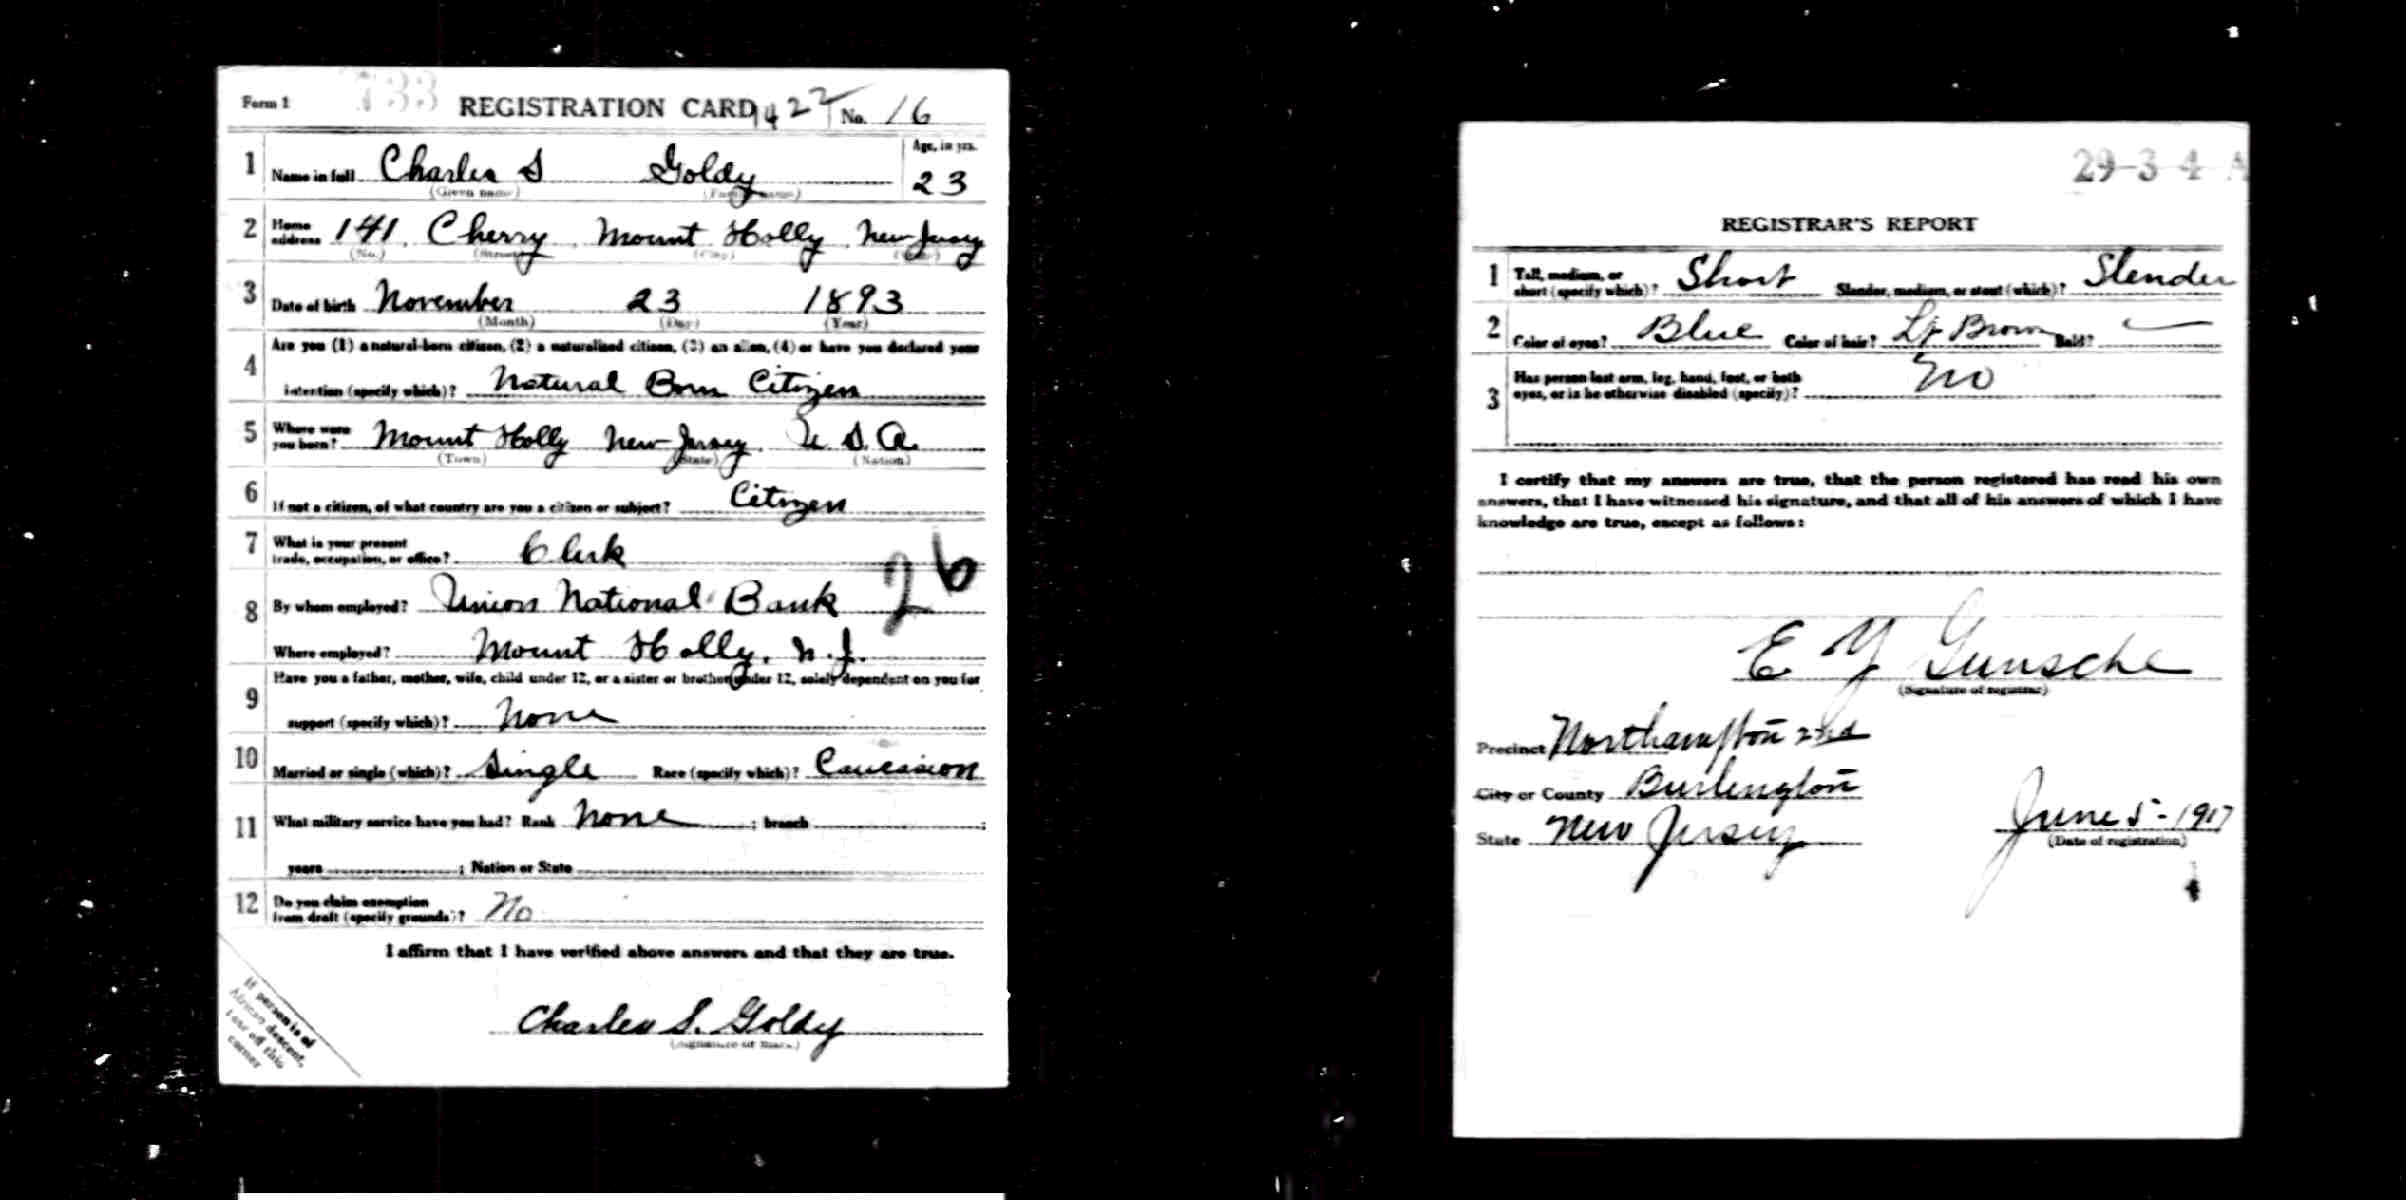 Form 1 733 REGISTRATION CARD 1422 No. 16
1 Name in full Charles S Goldy Age, in yrs. 23
(Given name) (Family name)
2 Home address 141 Cherry Mount Holly New Jersey
(No.) (Street) (City) (State)
3 Date of birth November 23 1893
(Month) (Day) (Year)
4 Are you (1) a natural-born citizen, (2) a naturalized citizen, (3) an alien, (4) or have you declared your
intention (specify which)? Natural Born Citizen
5 Where were you born? Mount Holly New Jersey U. S. A.
(Town) (State) (Nation)
6 If not a citizen, of what country are you a citizen or subject? Citizen
7 What is your present
trade, occupation, or office? Clerk 26
8 By whom employed? Union National Bank
Where employed? Mount Holly, N.J.
9 Have you a father, mother, wife, child under 12, or a sister or brother under 12, solely dependent on you for
support (specify which)? None
10 Married or single (which)? Single Race (specify which)? Caucasion
11 What military service have you had? Rank None ; branch ;
years ; Nation or State
12 Do you claim exemption
from draft (specify grounds)? No
I affirm that I have verified above answers and that they are true.
Charles S. Goldy
(Signature or mark)
If person is of
African descent,
tear off this
corner
29-3-4 A
REGISTRAR'S REPORT
1 Tall, medium, or
short (specify which)? Short Slender, medium, or stout (which)? Slender
2 Color of eyes? Blue Color of hair? Lt Brown Bald? —
3 Has person lost arm, leg, hand, foot, or both
eyes, or is he otherwise disabled (specify)? No
I certify that my answers are true, that the person registered has read his own
answers, that I have witnessed his signature, and that all of his answers of which I have
knowledge are true, except as follows:
E Y Gunsche
(Signature of registrar)
Precinct Northampton 2nd
City or County Burlington
State New Jersey June 5-1917
(Date of registration)